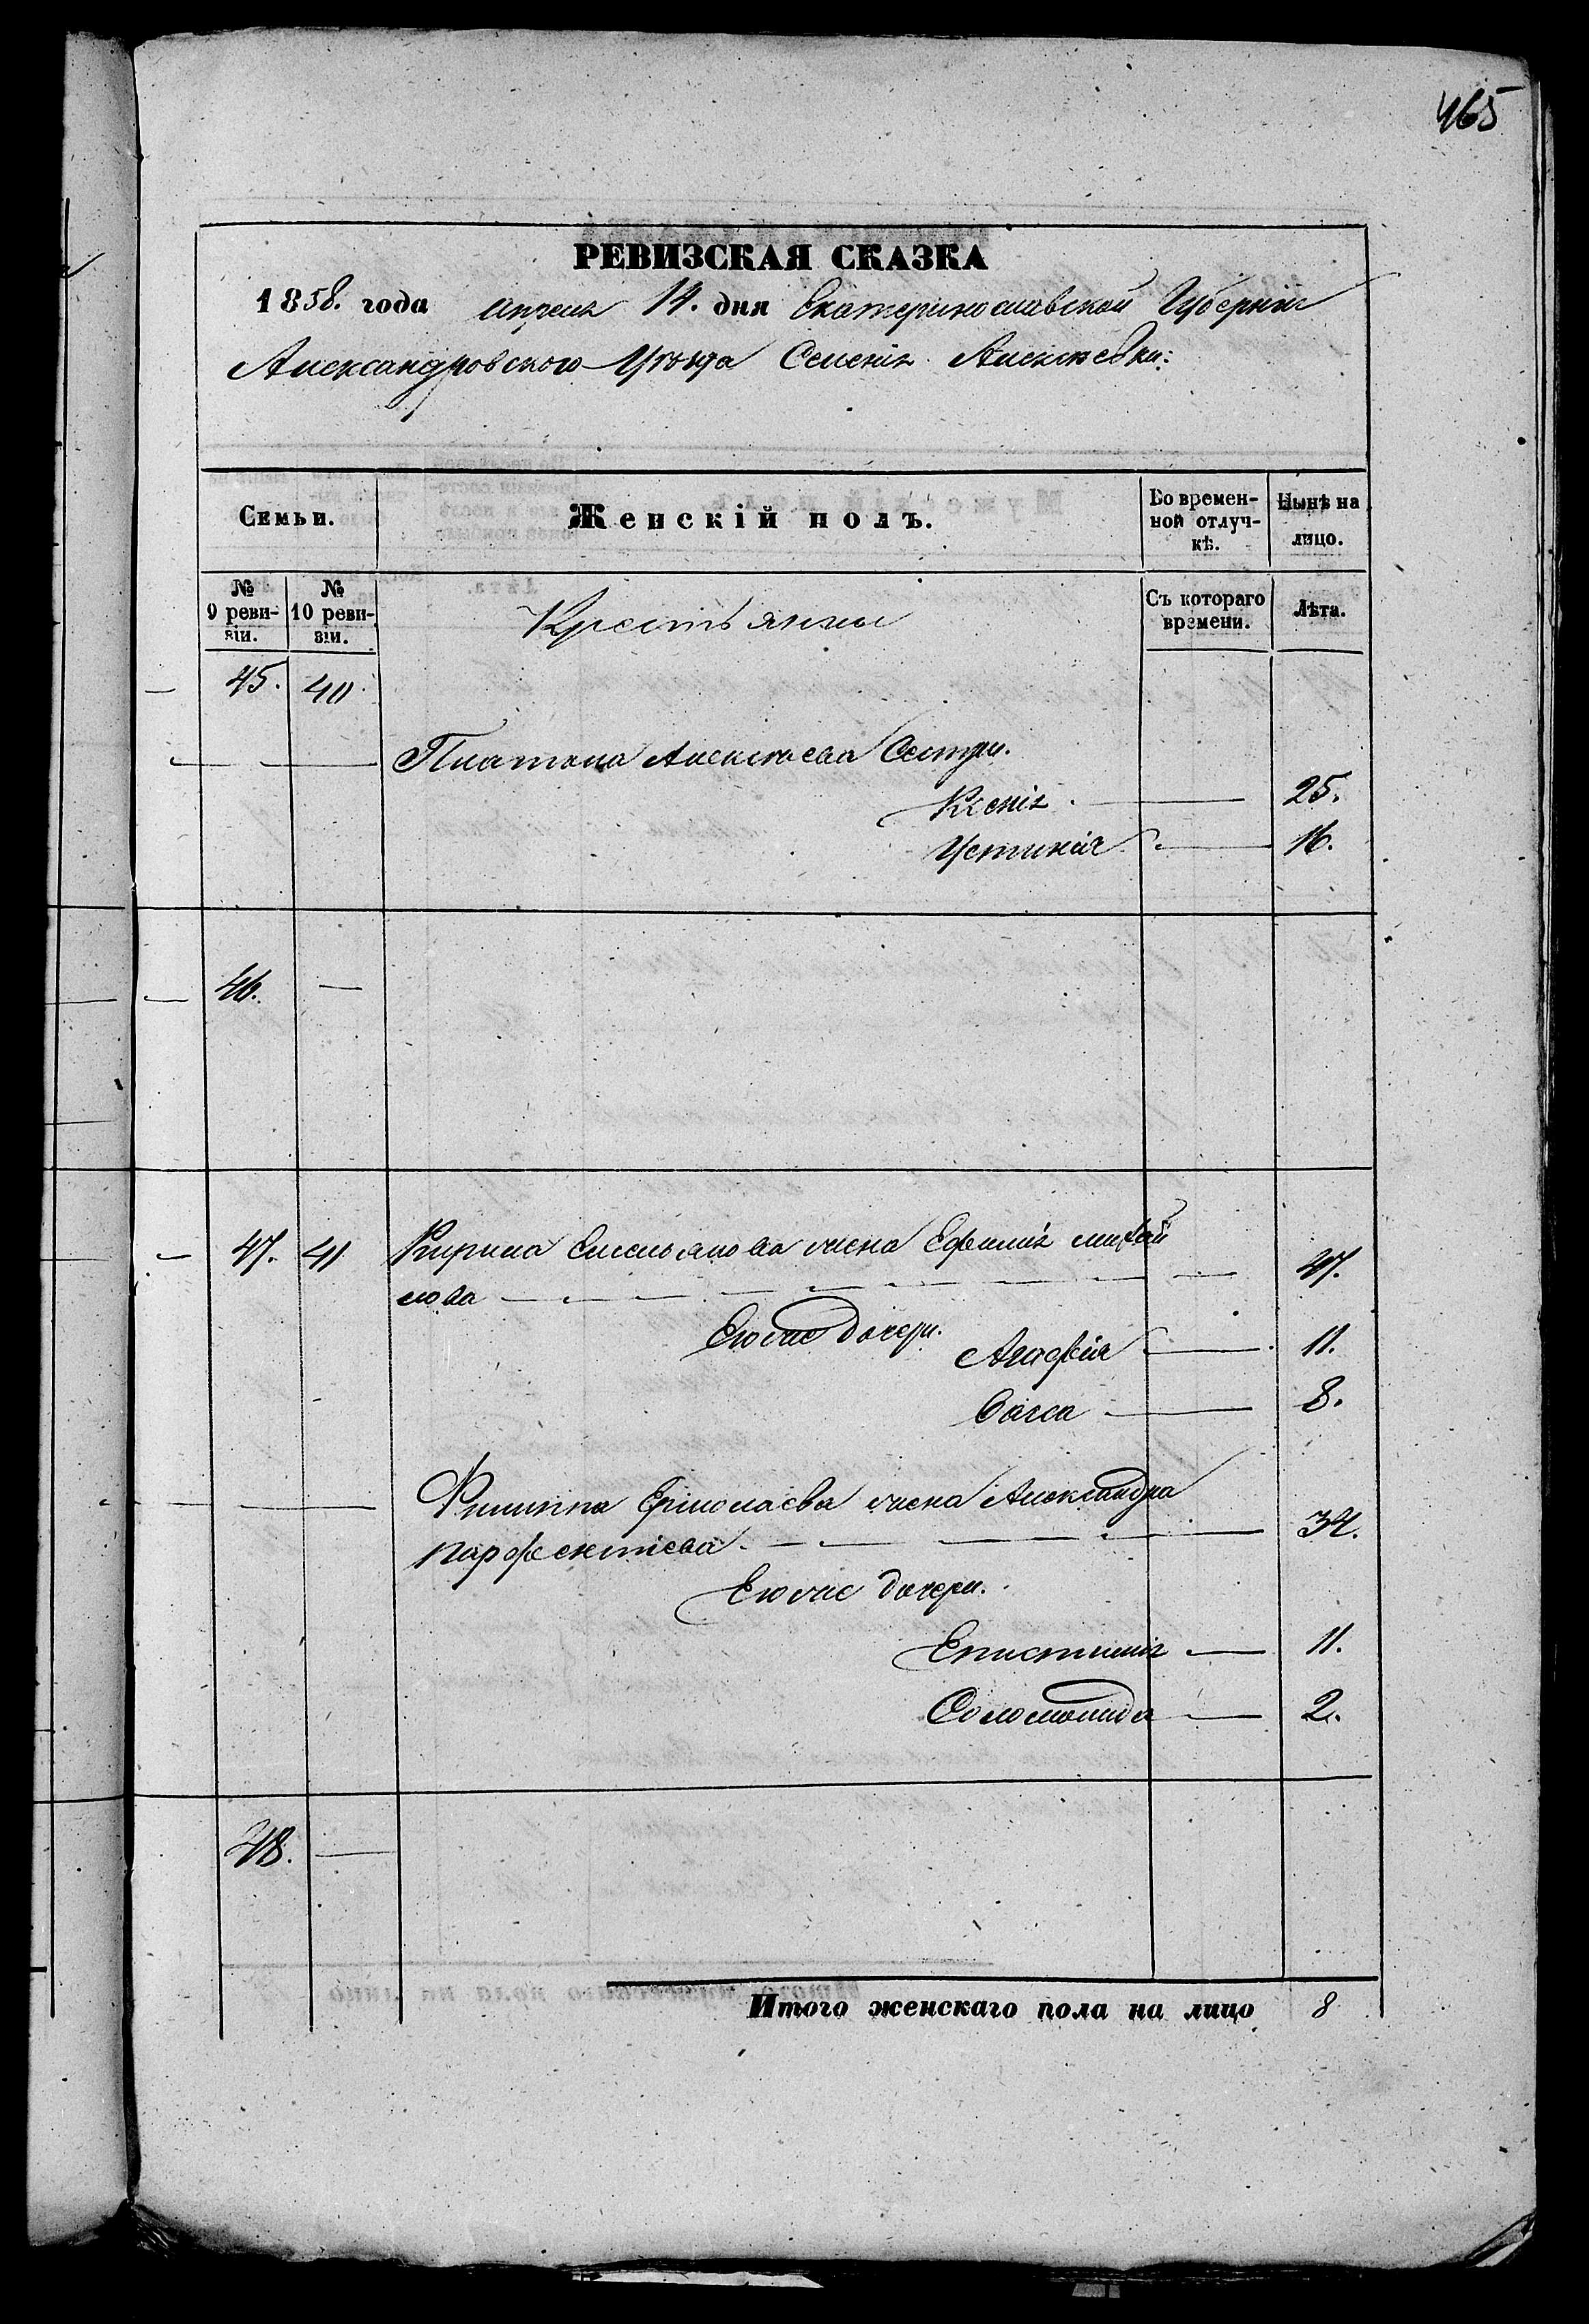 465
РЕВИЗСКАЯ СКАЗКА
1858. года апреля 14. дня Екатеринославской Губерніи
Александровского Уѣзда Селенія Алексѣевки:
Семьи.
Женскій полъ.
Во времен-
ной отлуч-
кѣ.
Нынѣ на
лицо.
№
9 реви-
зіи.
№
10 реви-
зіи.
Крестьянки
Съ котораго
времени.
Лѣта.
45. 40.
Платона Алексѣева Сестры.
Ксенія 25.
Устинія 16.
46. —
47. 41 Кирила Емельянова жена Ефимія михай
лова 47.
Еюже дочери.
Агафія 11.
Васса 8.
Филипа Ермолаева жена Александра
парфентіева 34.
Еюже дочери.
Епистимія 11.
Соломонида 2.
48. —
Итого женскаго пола на лицо 8